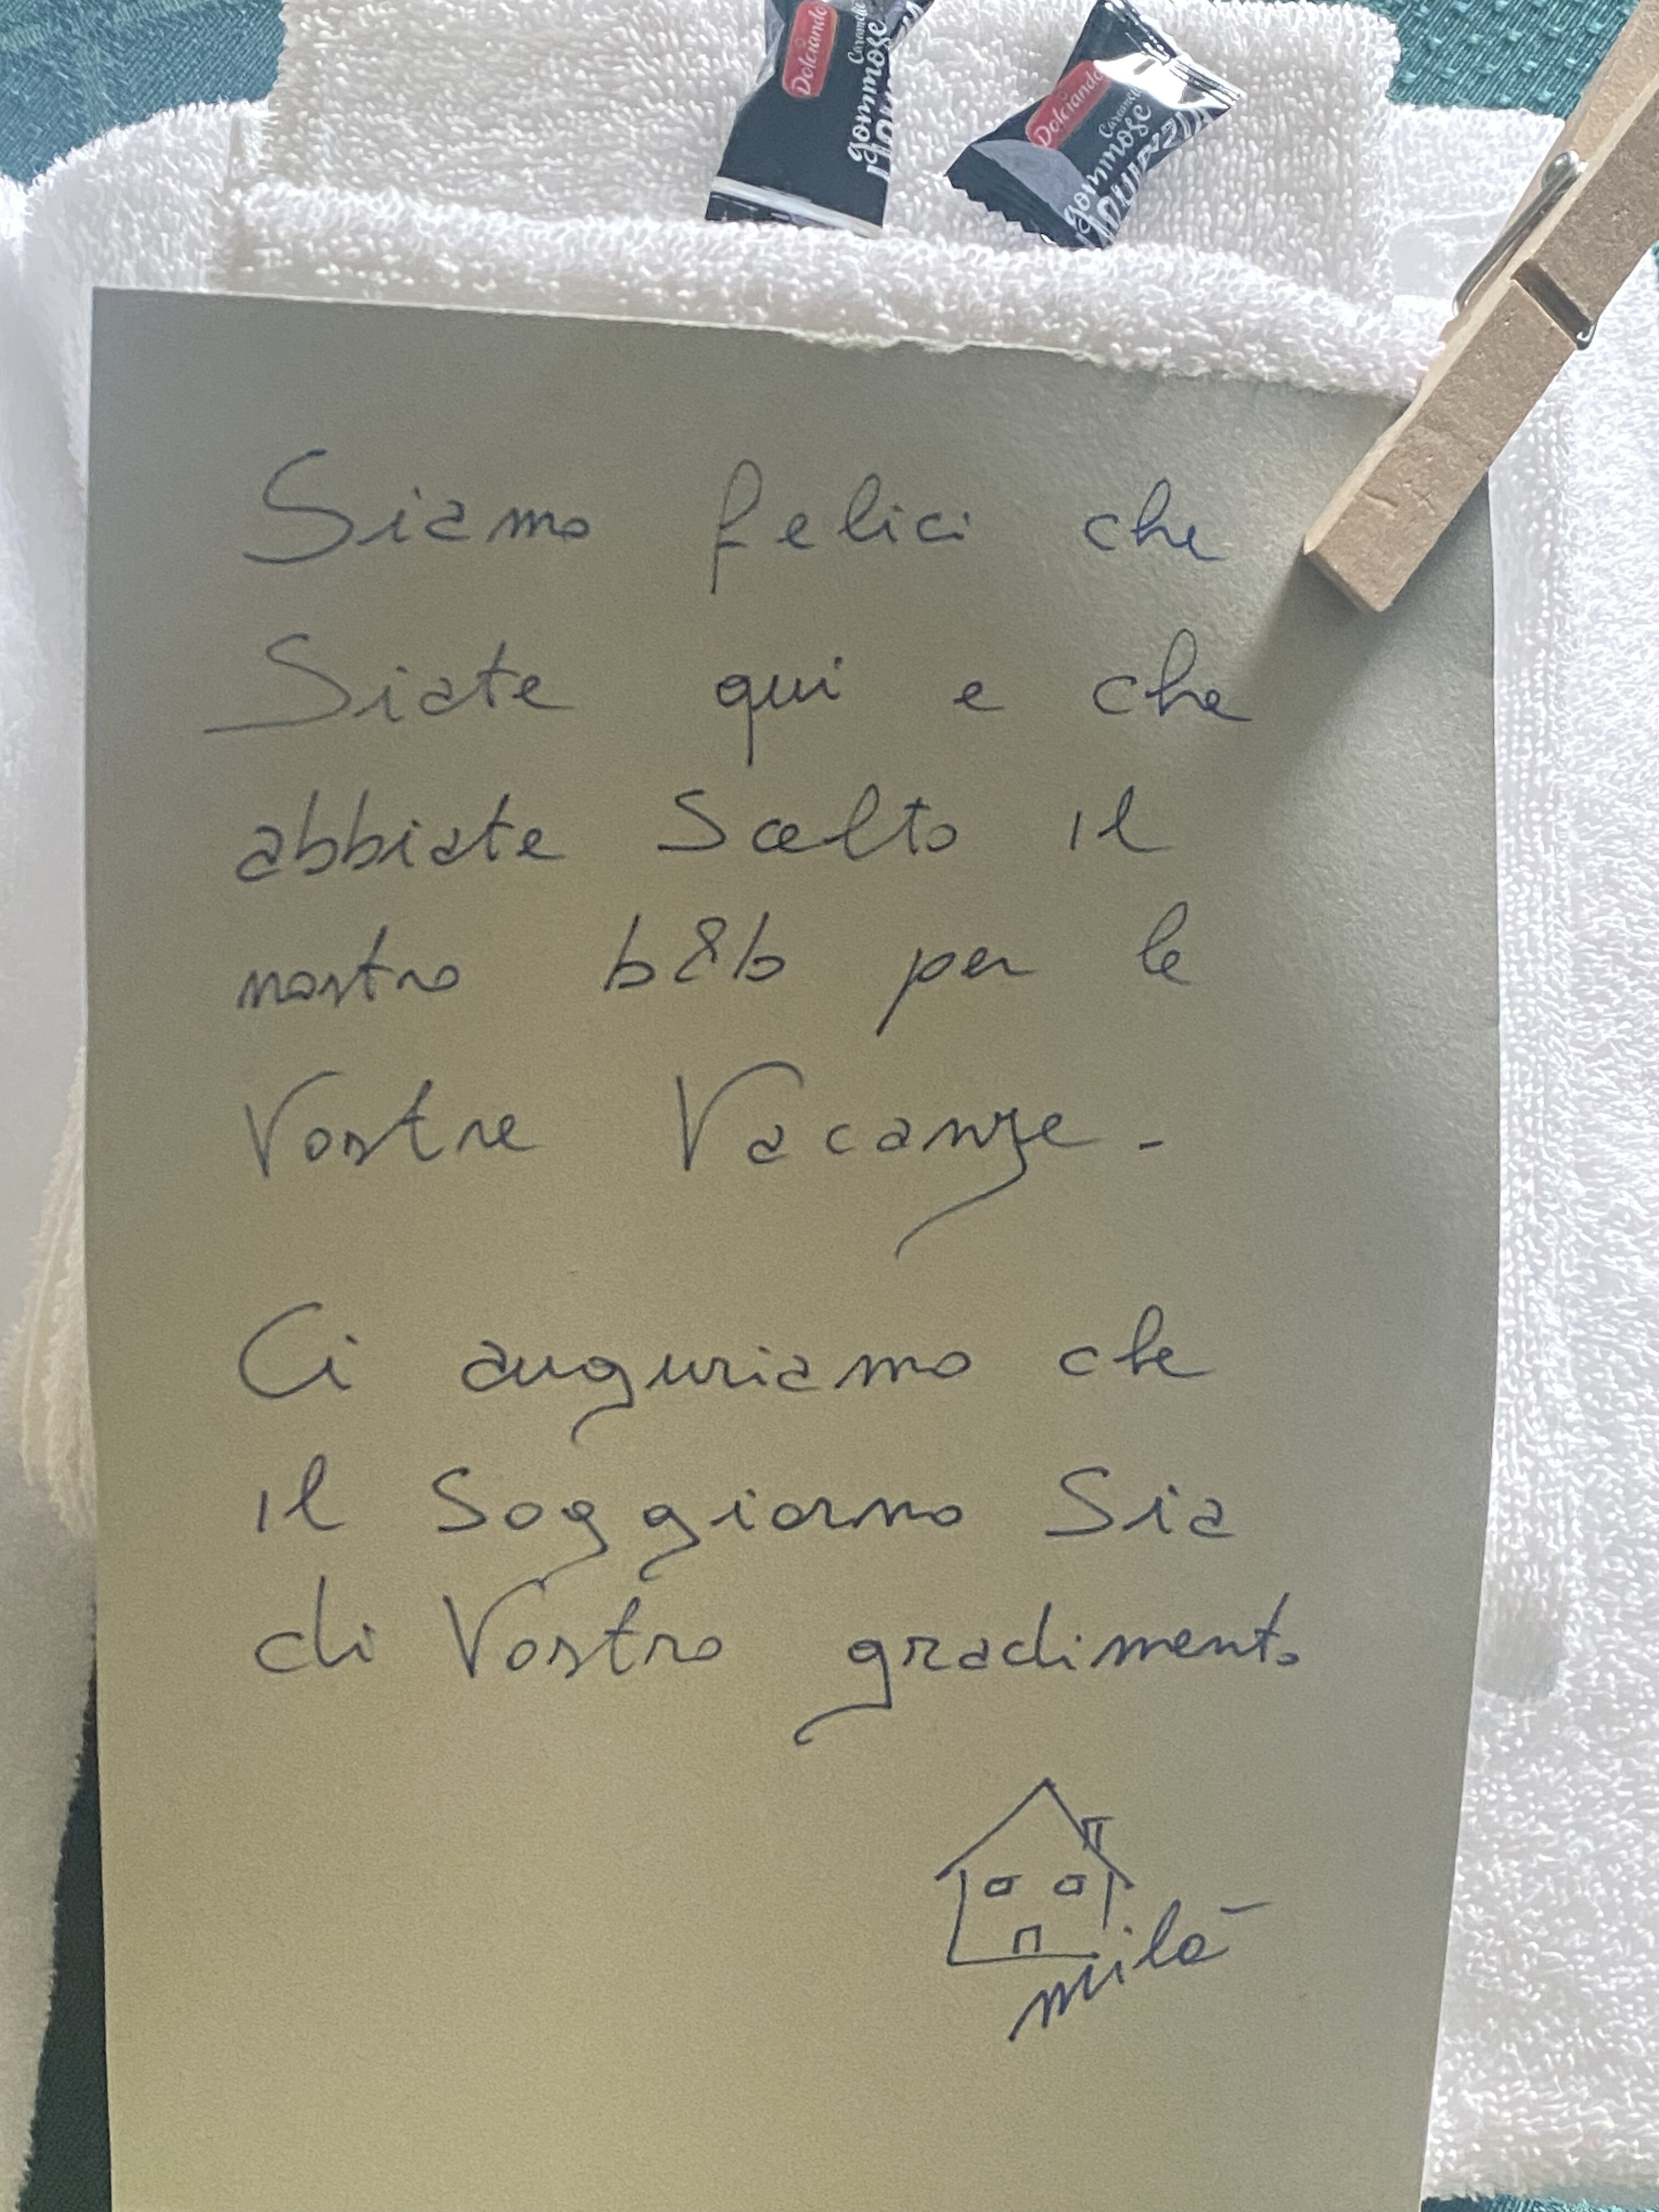 Dolciando
Caramelle
gommose
Dolciando
Caramelle
gommose
Siamo felici che
Siate qui e che
abbiate Scelto il
nostro b&b per le
Vostre Vacanze.
Ci auguriamo che
il Soggiorno Sia
di Vostro gradimento
milà